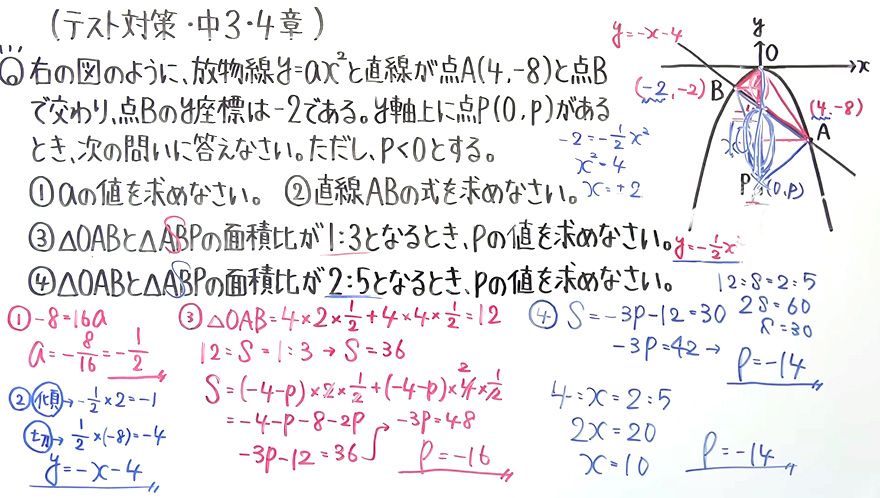 (テスト対策・中3・4章)
⑥ 右の図のように、放物線y=ax²と直線が点A(4,-8)と点B
で交わり、点Bのy座標は-2である。y軸上に点P(0,p)がある
とき、次の問いに答えなさい。ただし、P<0とする。
①aの値を求めなさい。 ②直線ABの式を求めなさい。
③△OABと△ABPの面積比が1:3となるとき、Pの値を求めなさい。
④△OABと△ABPの面積比が2:5となるとき、Pの値を求めなさい。
-2=-1/2x²
x²=4
x=±2
y=-x-4
y
O
x
B
(-2,-2)
(4,-8)
A
P
(0,p)
y=-1/2x²
① -8=16a
a=-8/16=-1/2
② 傾→-1/2×2=-1
切→1/2×(-8)=-4
y=-x-4
③ △OAB=4×2×1/2+4×4×1/2=12
12:S=1:3→S=36
S=(-4-p)×2×1/2+(-4-p)×4×1/2
2
=-4-p-8-2p
-3p-12=36
-3p=48
p=-16
④ S=-3p-12=30
-3p=42→
p=-14
12:S=2:5
2S=60
S=30
4:x=2:5
2x=20
x=10
p=-14